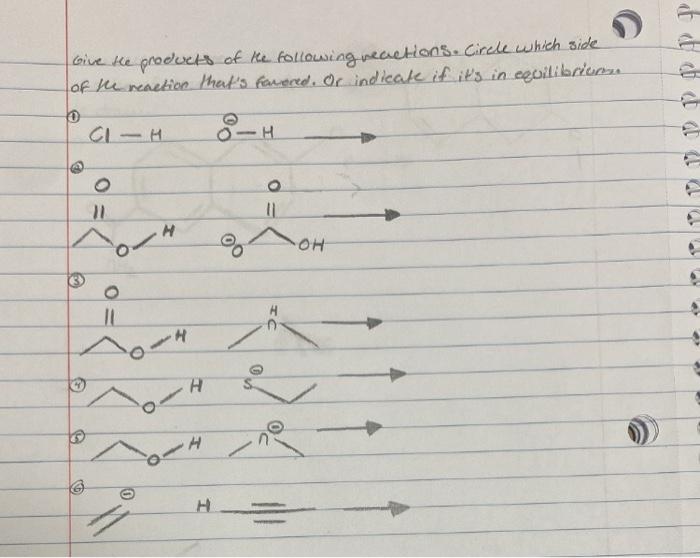 Give the products of the following reactions. Circle which side
of the reaction that's favored. Or indicate if it's in equilibrium.
①
Cl — H ⊖ O — H
②
O O
O H ⊖ O OH
③
O H
O H n
④
O H ⊖ S
⑤
O H n ⊖
⑥
⊖ H